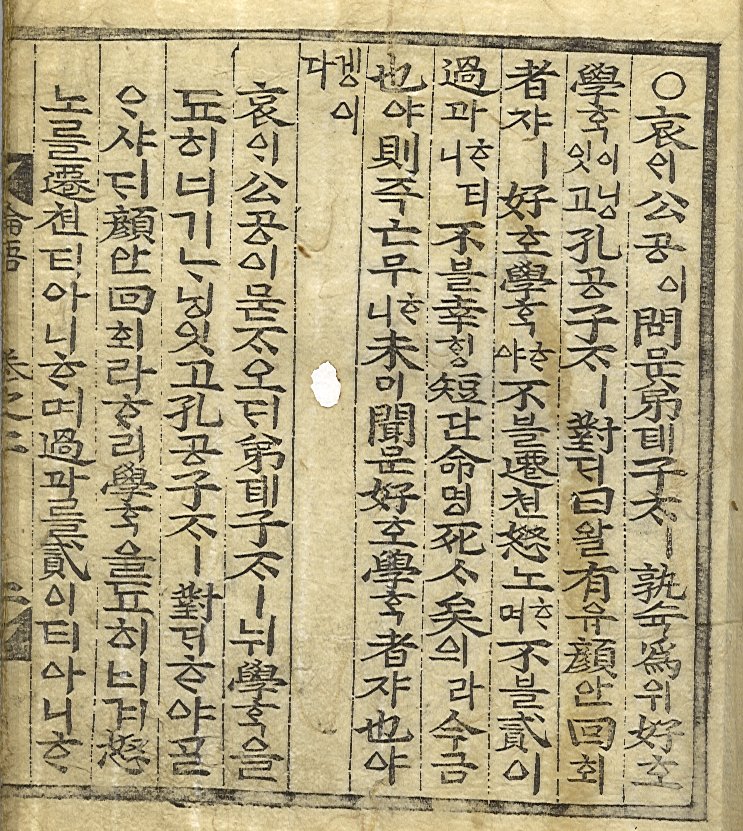 ○哀ᄋᆡ公공이問문弟뎨子ᄌᆞㅣ孰슉爲위好호
學ᄒᆞᆨ이닝잇고孔공子ᄌᆞㅣ對ᄃᆡ曰왈有유顔안回회
者쟈ㅣ好호學ᄒᆞᆨᄒᆞ야不블遷쳔怒노ᄒᆞ며不블貳이
過과ᄒᆞ더니不블幸ᄒᆡᆼ短단命명死ᄉᆞ矣의라今금
也야則즉亡무ᄒᆞ니未미聞문好호學ᄒᆞᆨ者쟈也야
겡이다
哀ᄋᆡ公공이묻ᄌᆞ오ᄃᆡ弟뎨子ᄌᆞㅣ뉘學ᄒᆞᆨ을
됴히너기ᄂᆞ닝잇고孔공子ᄌᆞㅣ對ᄃᆡᄒᆞ야ᄀᆞᆯ
ᄋᆞ샤ᄃᆡ顔안回회라ᄒᆞ리學ᄒᆞᆨ을됴히너겨怒
노를遷쳔티아니ᄒᆞ며過과를貳이티아니ᄒᆞ
論語 卷之二 二